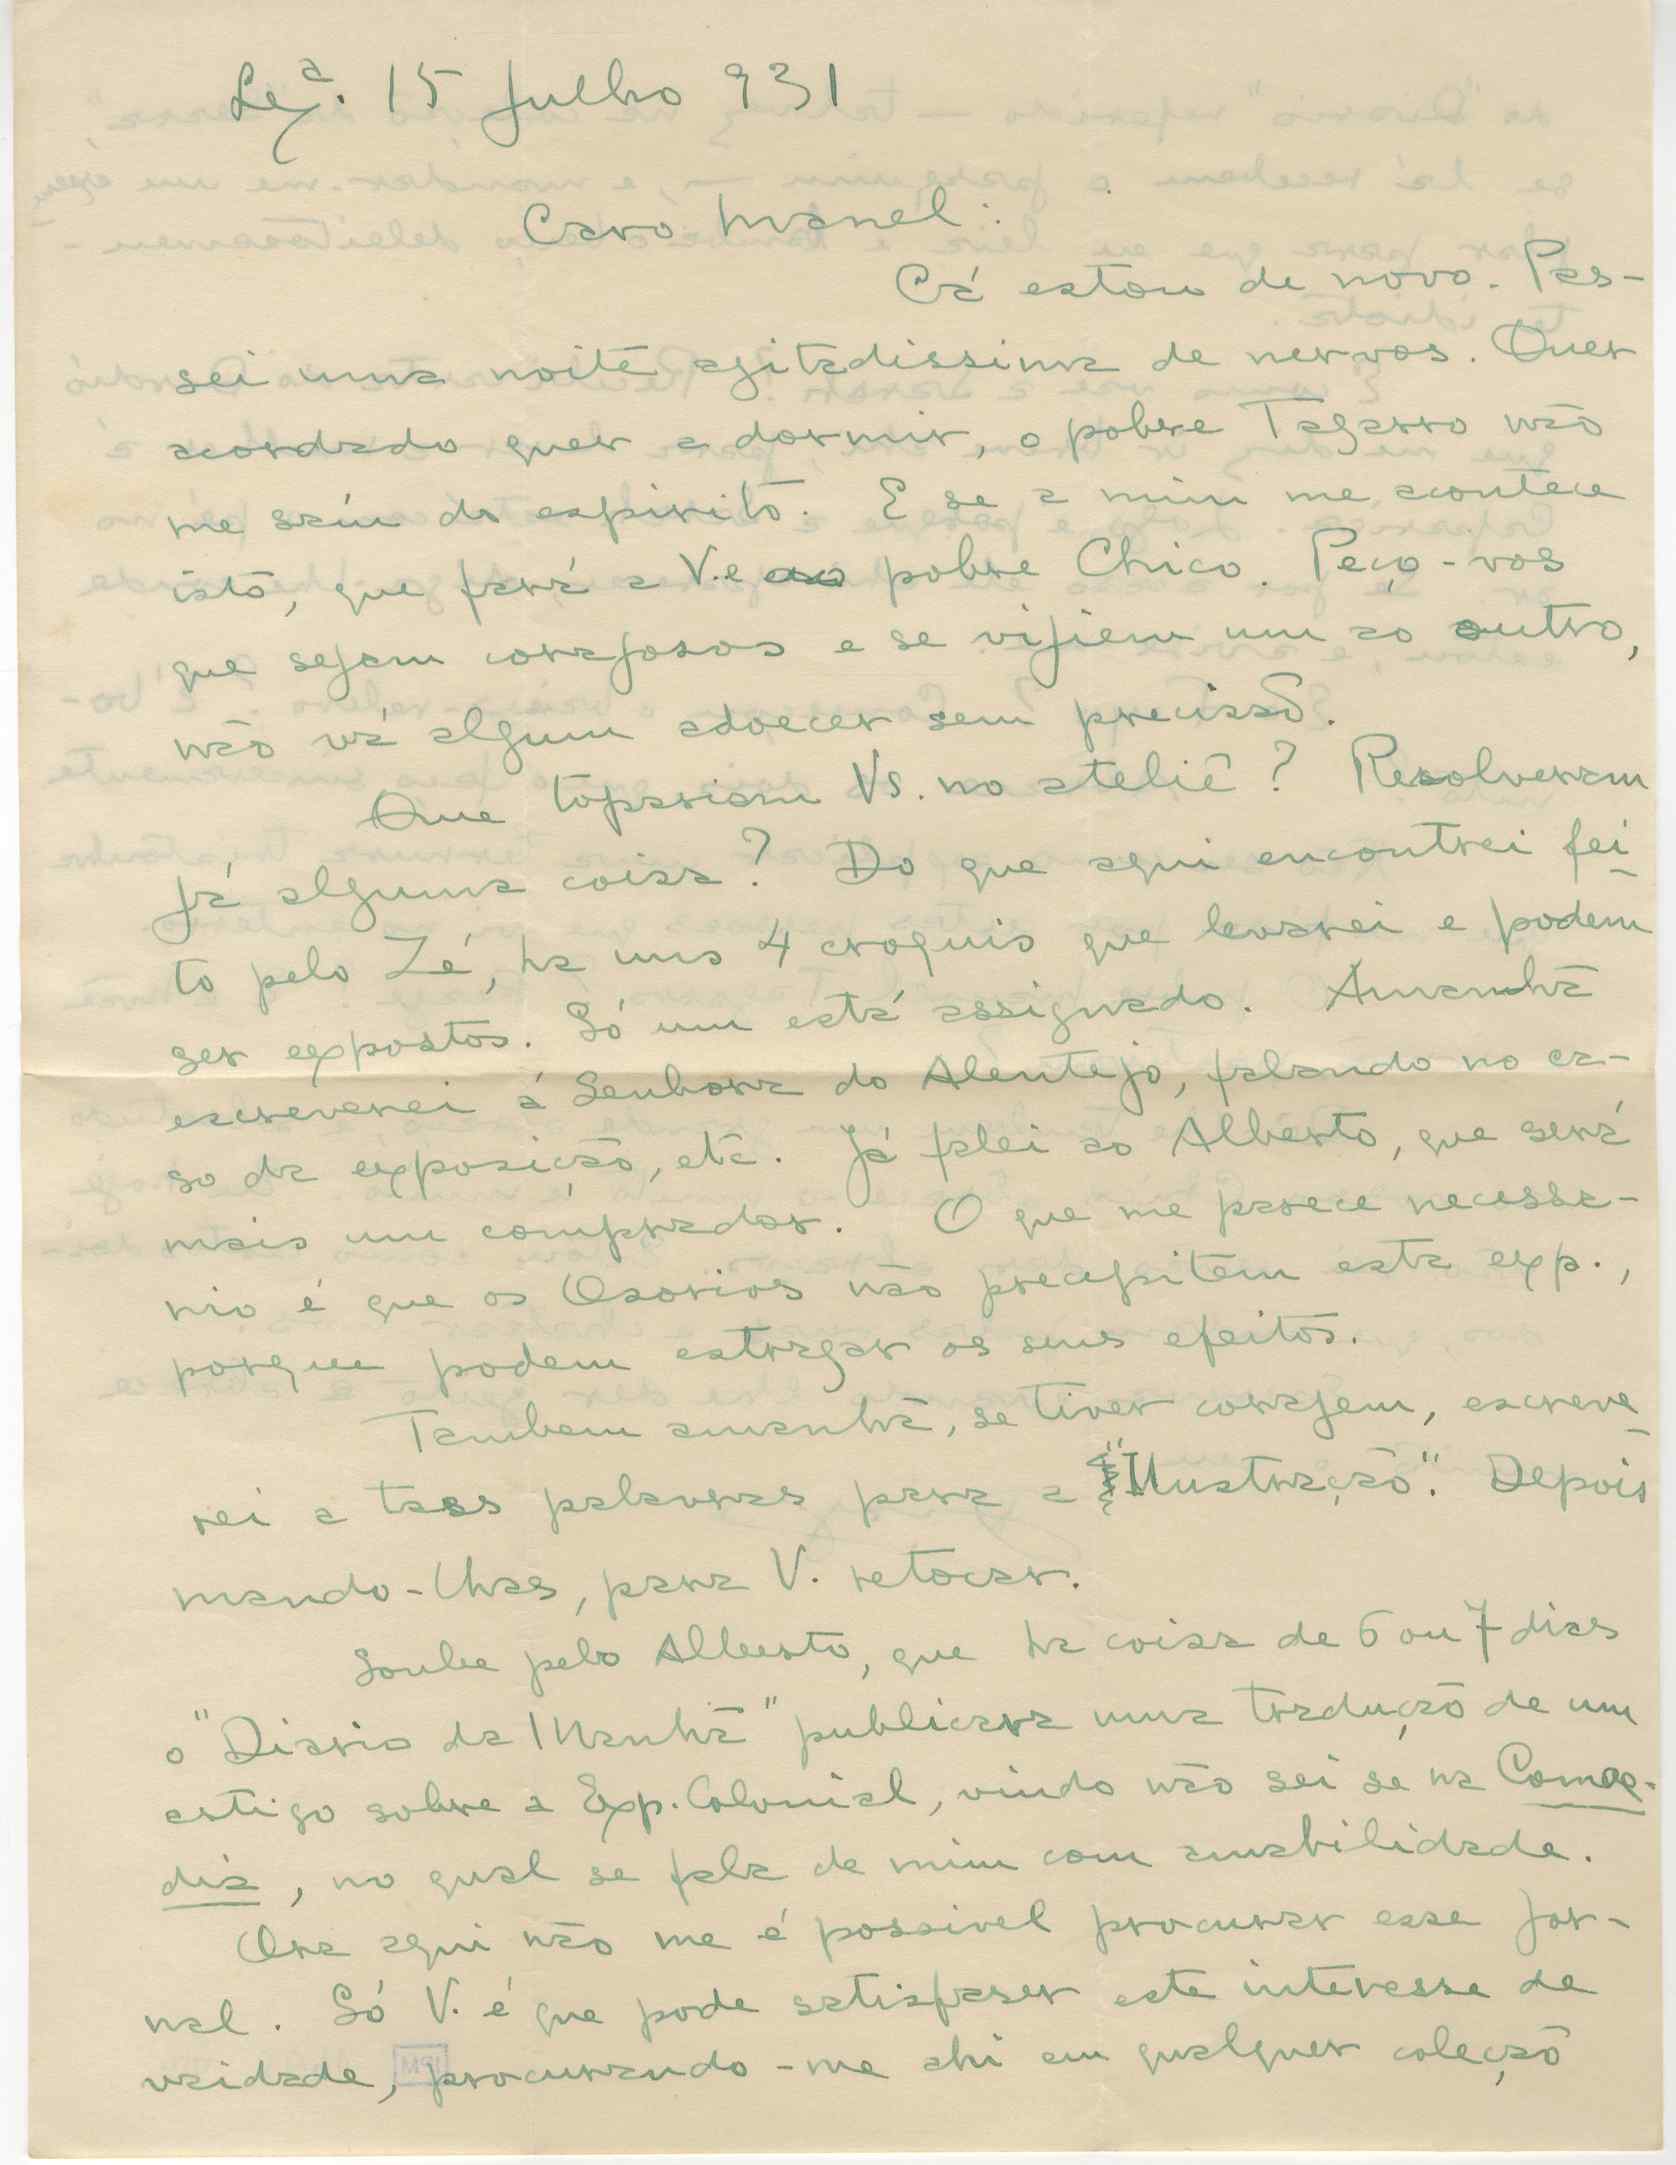 Lxª. 15 Julho 931
Caro Manel:
Cá estou de novo. Pas-
sei uma noite agitadissima de nervos. Quer
acordado quer a dormir, o pobre Tagarro não
me saíu do espirito. E se a mim me acontece
isto, que fará a V. e ao pobre Chico. Peço-vos
que sejam corajosos e se vijiem um ao outro,
não vá algum adoecer sem precisão.
Que topariam Vs. no ateliê? Resolveram
já alguma coisa? Do que aqui encontrei fei-
to pelo Zé, ha uns 4 croquis que levarei e podem
ser expostos. Só um está assignado. Amanhã
escreverei á Senhora do Alentejo, falando no ca-
so da exposição, etc. Já falei ao Alberto, que será
mais um comprador. O que me parece necessa-
rio é que os Osorios não precipitem esta exp.,
porque podem estragar os seus efeitos.
Tambem amanhã, se tiver corajem, escreve-
rei a tass palavras para a "Ilustração". Depois
mando-lhas, para V. retocar.
Soube pelo Alberto, que ha coisa de 6 ou 7 dias
o "Diario da Manhã" publicara uma tradução de um
artigo sobre a Exp. Colonial, vindo não sei se na Comoe-
dia, no qual se fala de mim com amabilidade.
Ora aqui não me é possivel procurar esse jor-
nal. Só V. é que pode satisfaser este interesse de
vaidade, procurando-me ahi em qualquer coleção
MPI